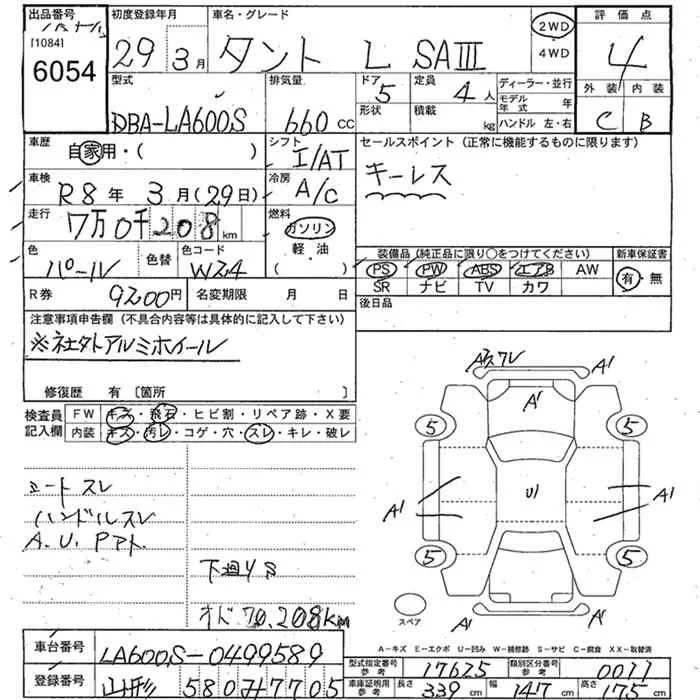 出品番号 初度登録年月 車名・グレード 評価点
[1084]
6054
29年 3月 タント L SAⅢ 2WD 4WD 4
外装 内装
C B
型式 排気量 ドア 定員 ディーラー・並行
DBA-LA600S 660cc 5 4人 モデル年式 年
形状 積載 kg ハンドル 左・右
車歴 自家用・( ) シフト I/AT セールスポイント (正常に機能するものに限ります)
キーレス
車検 R8年 3月(29日) 冷房 A/C
走行 7万0千208km 燃料 ガソリン 軽・油 ( )
色 パール 色替 色コード W24
装備品 (純正品に限り○をつけてください) 新車保証書
PS PW ABS エアB AW 有・無
SR ナビ TV カワ
R券 9200円 名変期限 月 日 後日品
注意事項申告欄 (不具合内容等は具体的に記入して下さい)
※社外アルミホイール
修復歴 有 [箇所 ]
検査員記入欄 FW キズ・飛石・ヒビ割・リペア跡・X要
内装 キズ・汚レ・コゲ・穴・スレ・キレ・破レ
シート スレ
ハンドルスレ
A.U.
下廻りS
オド70,208km
A1 A1
A1
5 5
A1 U1 A1
5 5
スペア A1
A-キズ E-エクボ U-凹み W-補修跡 S-サビ C-腐食 XX-取替済
車台番号 LA600S-0499589
型式指定番号 参考 17625 類別区分番号 参考 0011
登録番号 山形 580 7705
車庫証明用 参考 長さ 339cm 幅 147cm 高さ 175cm